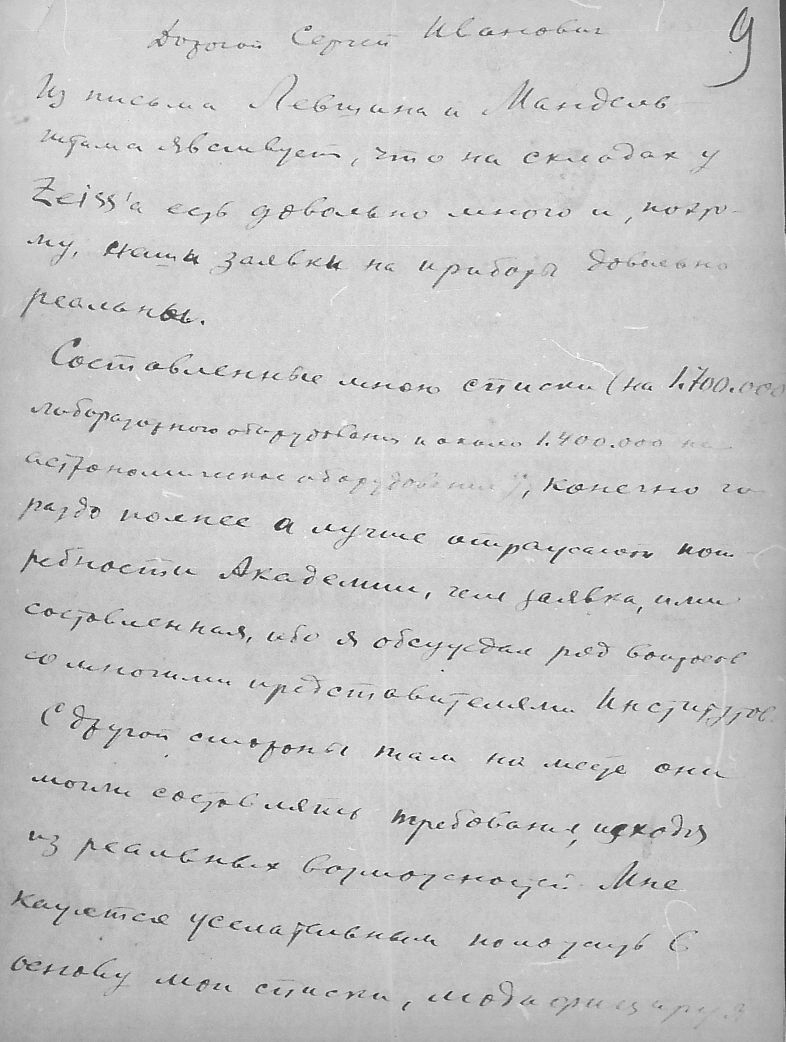 9
Дорогой Сергей Иванович
Из письма Левшина и Мандель-
штама явствует, что на складах у
Zeiss'а есть довольно много и, поэто-
му, наши заявки на приборы довольно
реальны.
Составленные мною списки (на 1.700.000
лабораторного оборудования и около 1.400.000 на
астрономическое оборудование), конечно го-
раздо полнее и лучше отражают пот-
ребности Академии, чем заявка, ими
составленная, ибо я обсуждал ряд вопросов
со многими представителями Институтов.
С другой стороны там на месте они
могли составлять требования, исходя
из реальных возможностей. Мне
кажется желательным положить в
основу мои списки, модифицируя